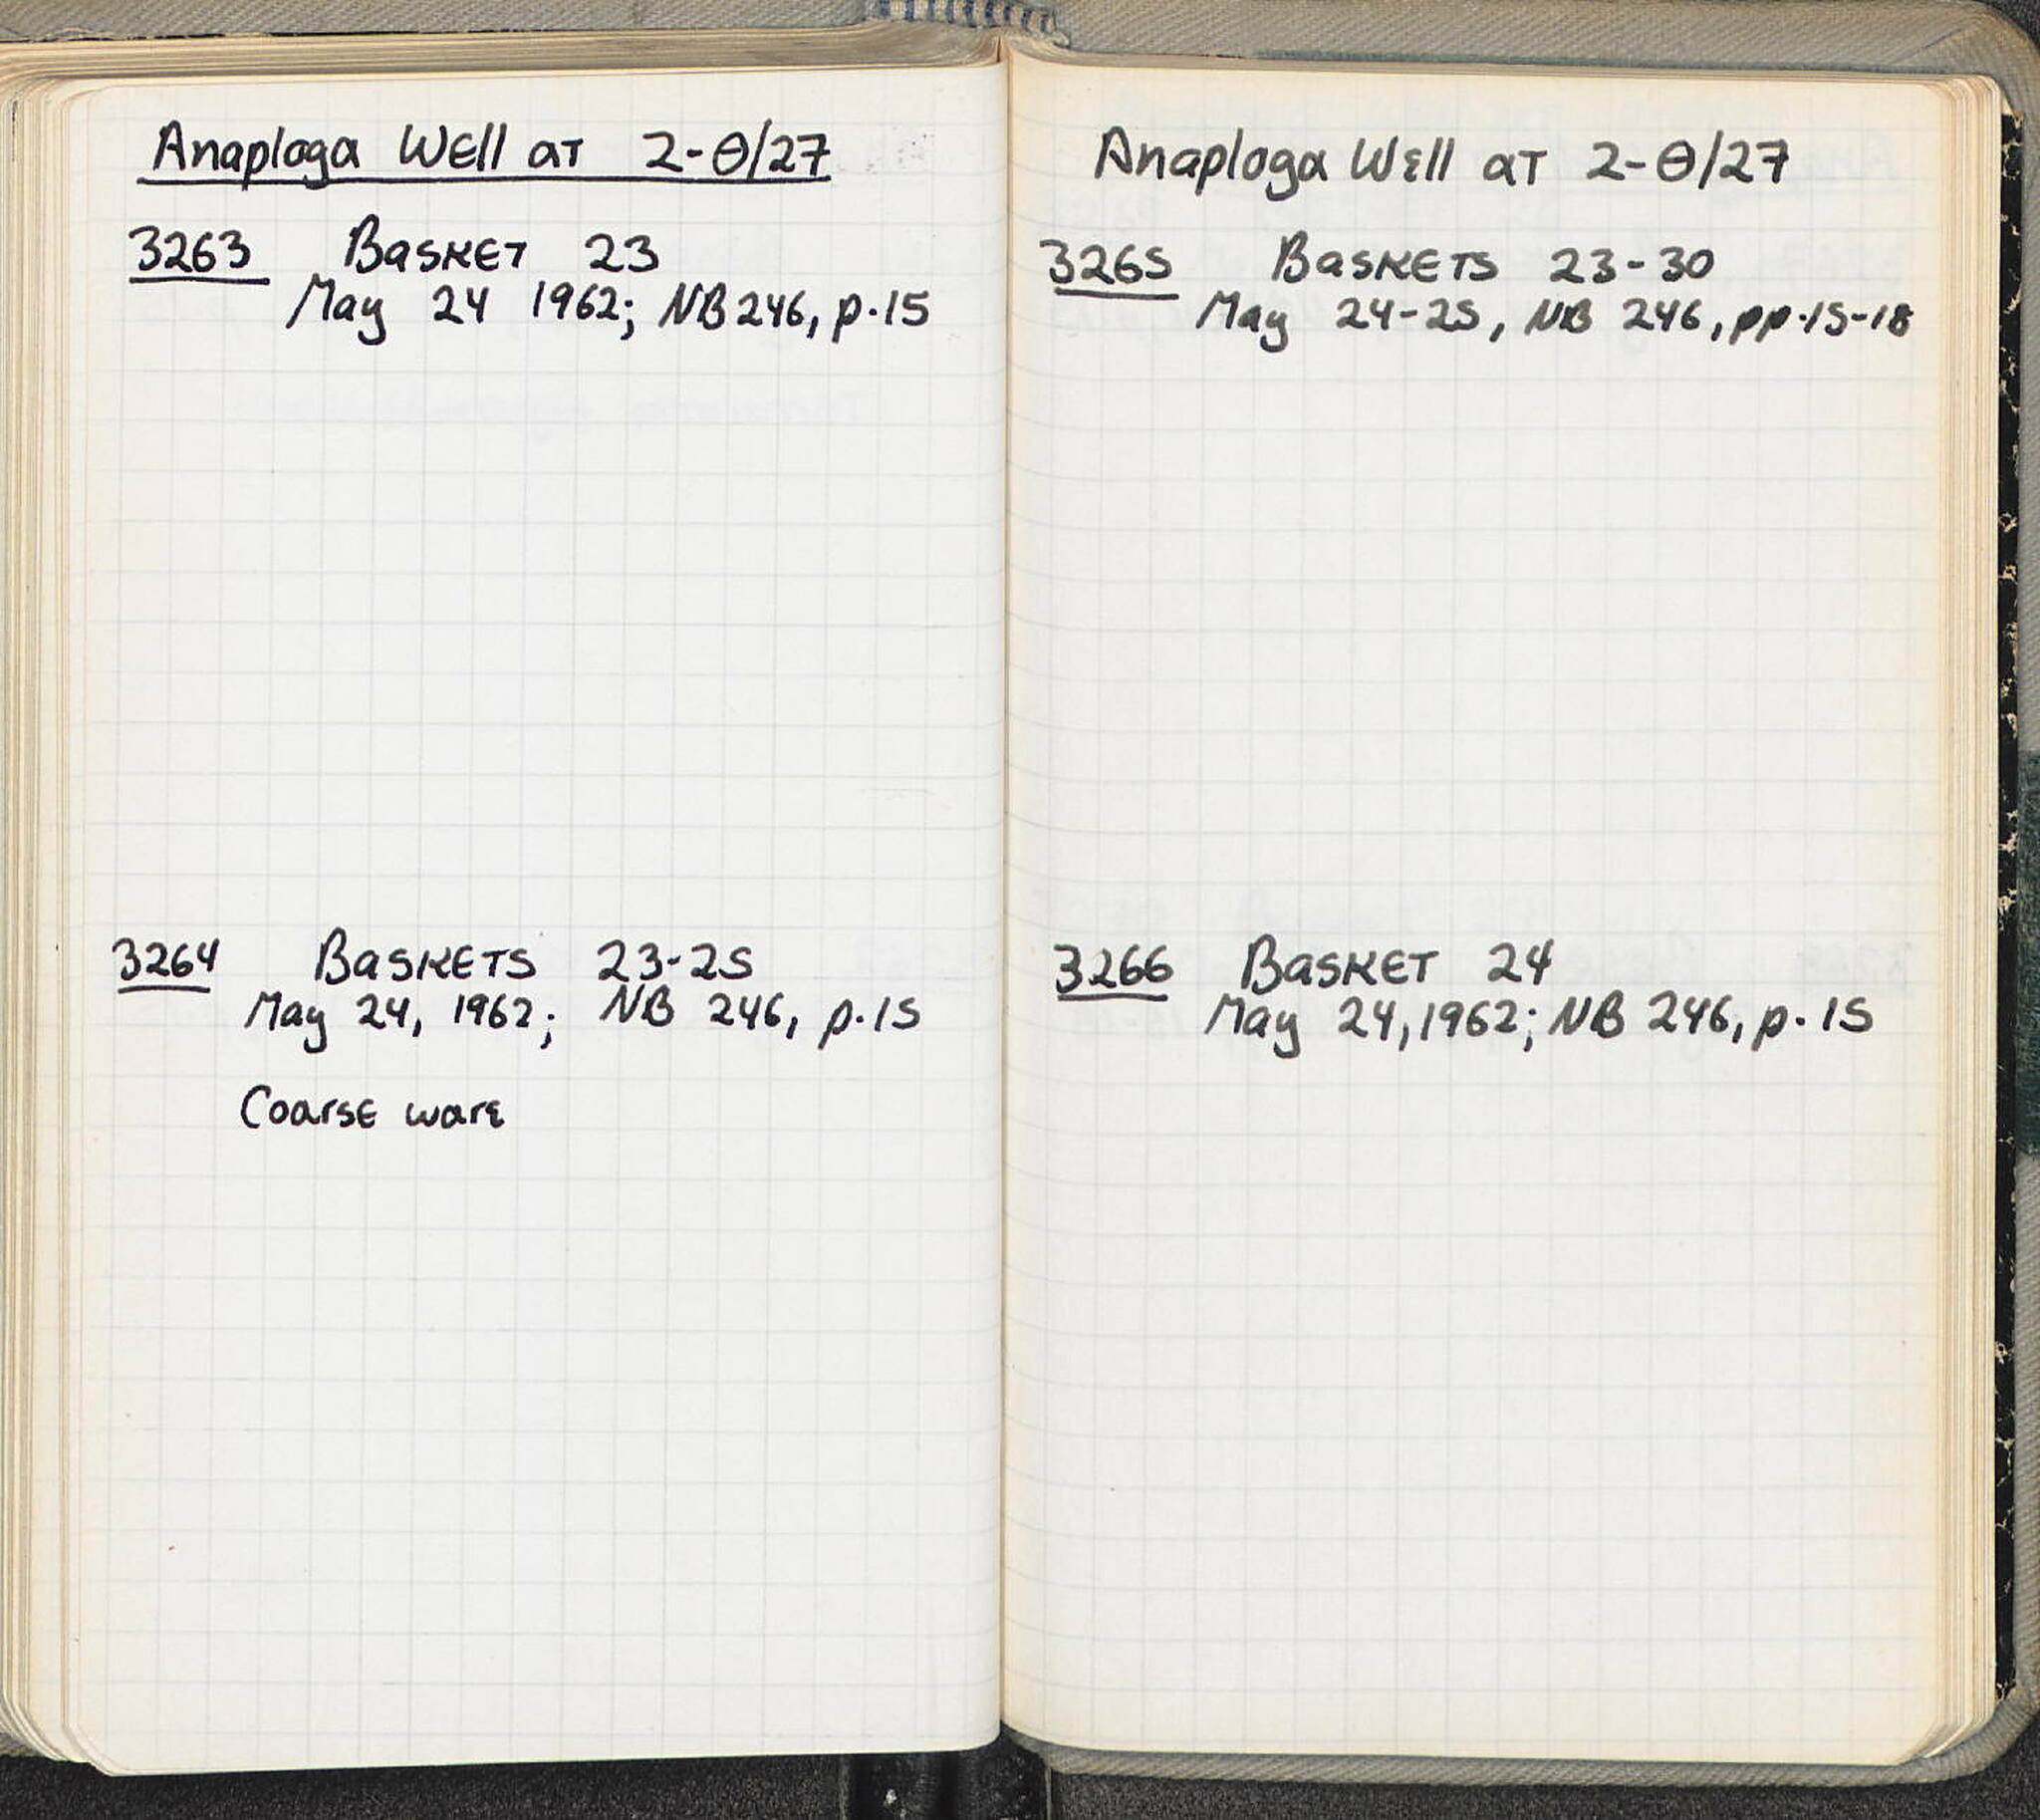 Anaploga Well at 2-Θ/27
3263 Basket 23
May 24 1962; NB 246, p. 15
3264 Baskets 23-25
May 24, 1962; NB 246, p. 15
Coarse ware
Anaploga Well at 2-Θ/27
3265 Baskets 23-30
May 24-25, NB 246, pp. 15-18
3266 Basket 24
May 24, 1962; NB 246, p. 15